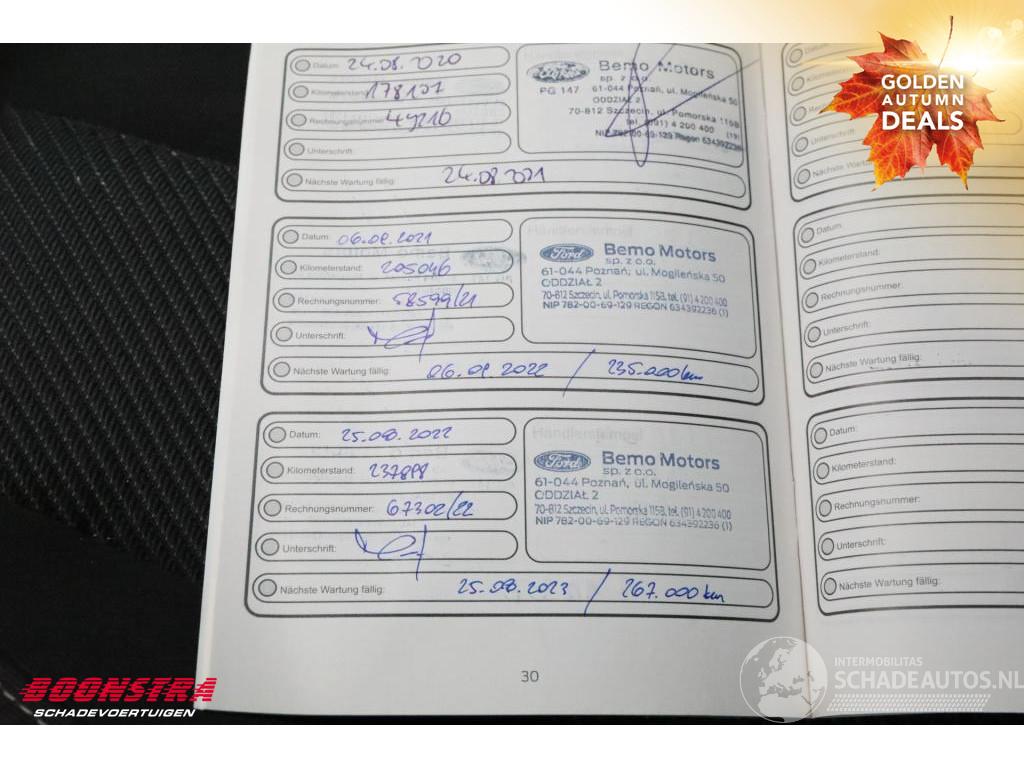 GOLDEN
AUTUMN
DEALS
Datum: 24.08.2020
Kilometerstand:
Rechnungsnummer:
Unterschrift:
Nächste Wartung fällig: 24.08.2021
Ford
Bemo Motors
sp. z o.o.
PG 147 61-044 Poznań, ul. Mogileńska 50
ODDZIAŁ 2
70-812 Szczecin, ul. Pomorska 115B
tel. (91) 4 200 400
NIP 782-00-69-129 Regon 634392236
Datum: 06.09.2021
Kilometerstand: 205046
Rechnungsnummer: 58599/21
Unterschrift:
Nächste Wartung fällig: 06.09.2022 / 235.000km
Ford
Bemo Motors
sp. z o.o.
61-044 Poznań, ul. Mogileńska 50
ODDZIAŁ 2
70-812 Szczecin, ul. Pomorska 115B, tel. (91) 4 200 400
NIP 782-00-69-129 REGON 634392236 (1)
Datum: 25.08.2022
Kilometerstand: 237898
Rechnungsnummer: 67302/22
Unterschrift:
Nächste Wartung fällig: 25.08.2023 / 267.000km
Händlerstempel
Ford
Bemo Motors
sp. z o.o.
61-044 Poznań, ul. Mogileńska 50
ODDZIAŁ 2
70-812 Szczecin, ul. Pomorska 115B, tel. (91) 4 200 400
NIP 782-00-69-129 REGON 634392236 (1)
30
Unterschrift:
Nächste Wartung
Datum:
Kilometerstand:
Rechnungsnummer:
Unterschrift:
Nächste Wartung fällig:
Datum:
Kilometerstand:
Rechnungsnummer:
Unterschrift:
Nächste Wartung fällig:
BOONSTRA
SCHADEVOERTUIGEN
INTERMOBILITAS
SCHADEAUTOS.NL